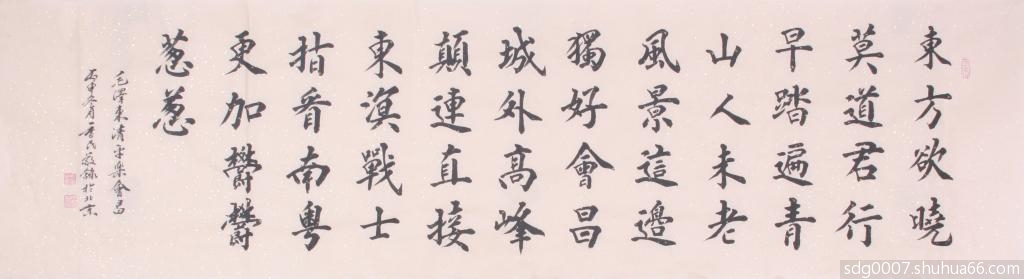 東方欲曉
莫道君行
早踏遍青
山人未老
風景這邊
獨好會昌
城外高峰
顛連直接
東溟戰士
指看南粵
更加鬱鬱
蔥蔥
毛澤東清平樂會昌
丙申冬月
於北京
sdg0007.shuhua66.com